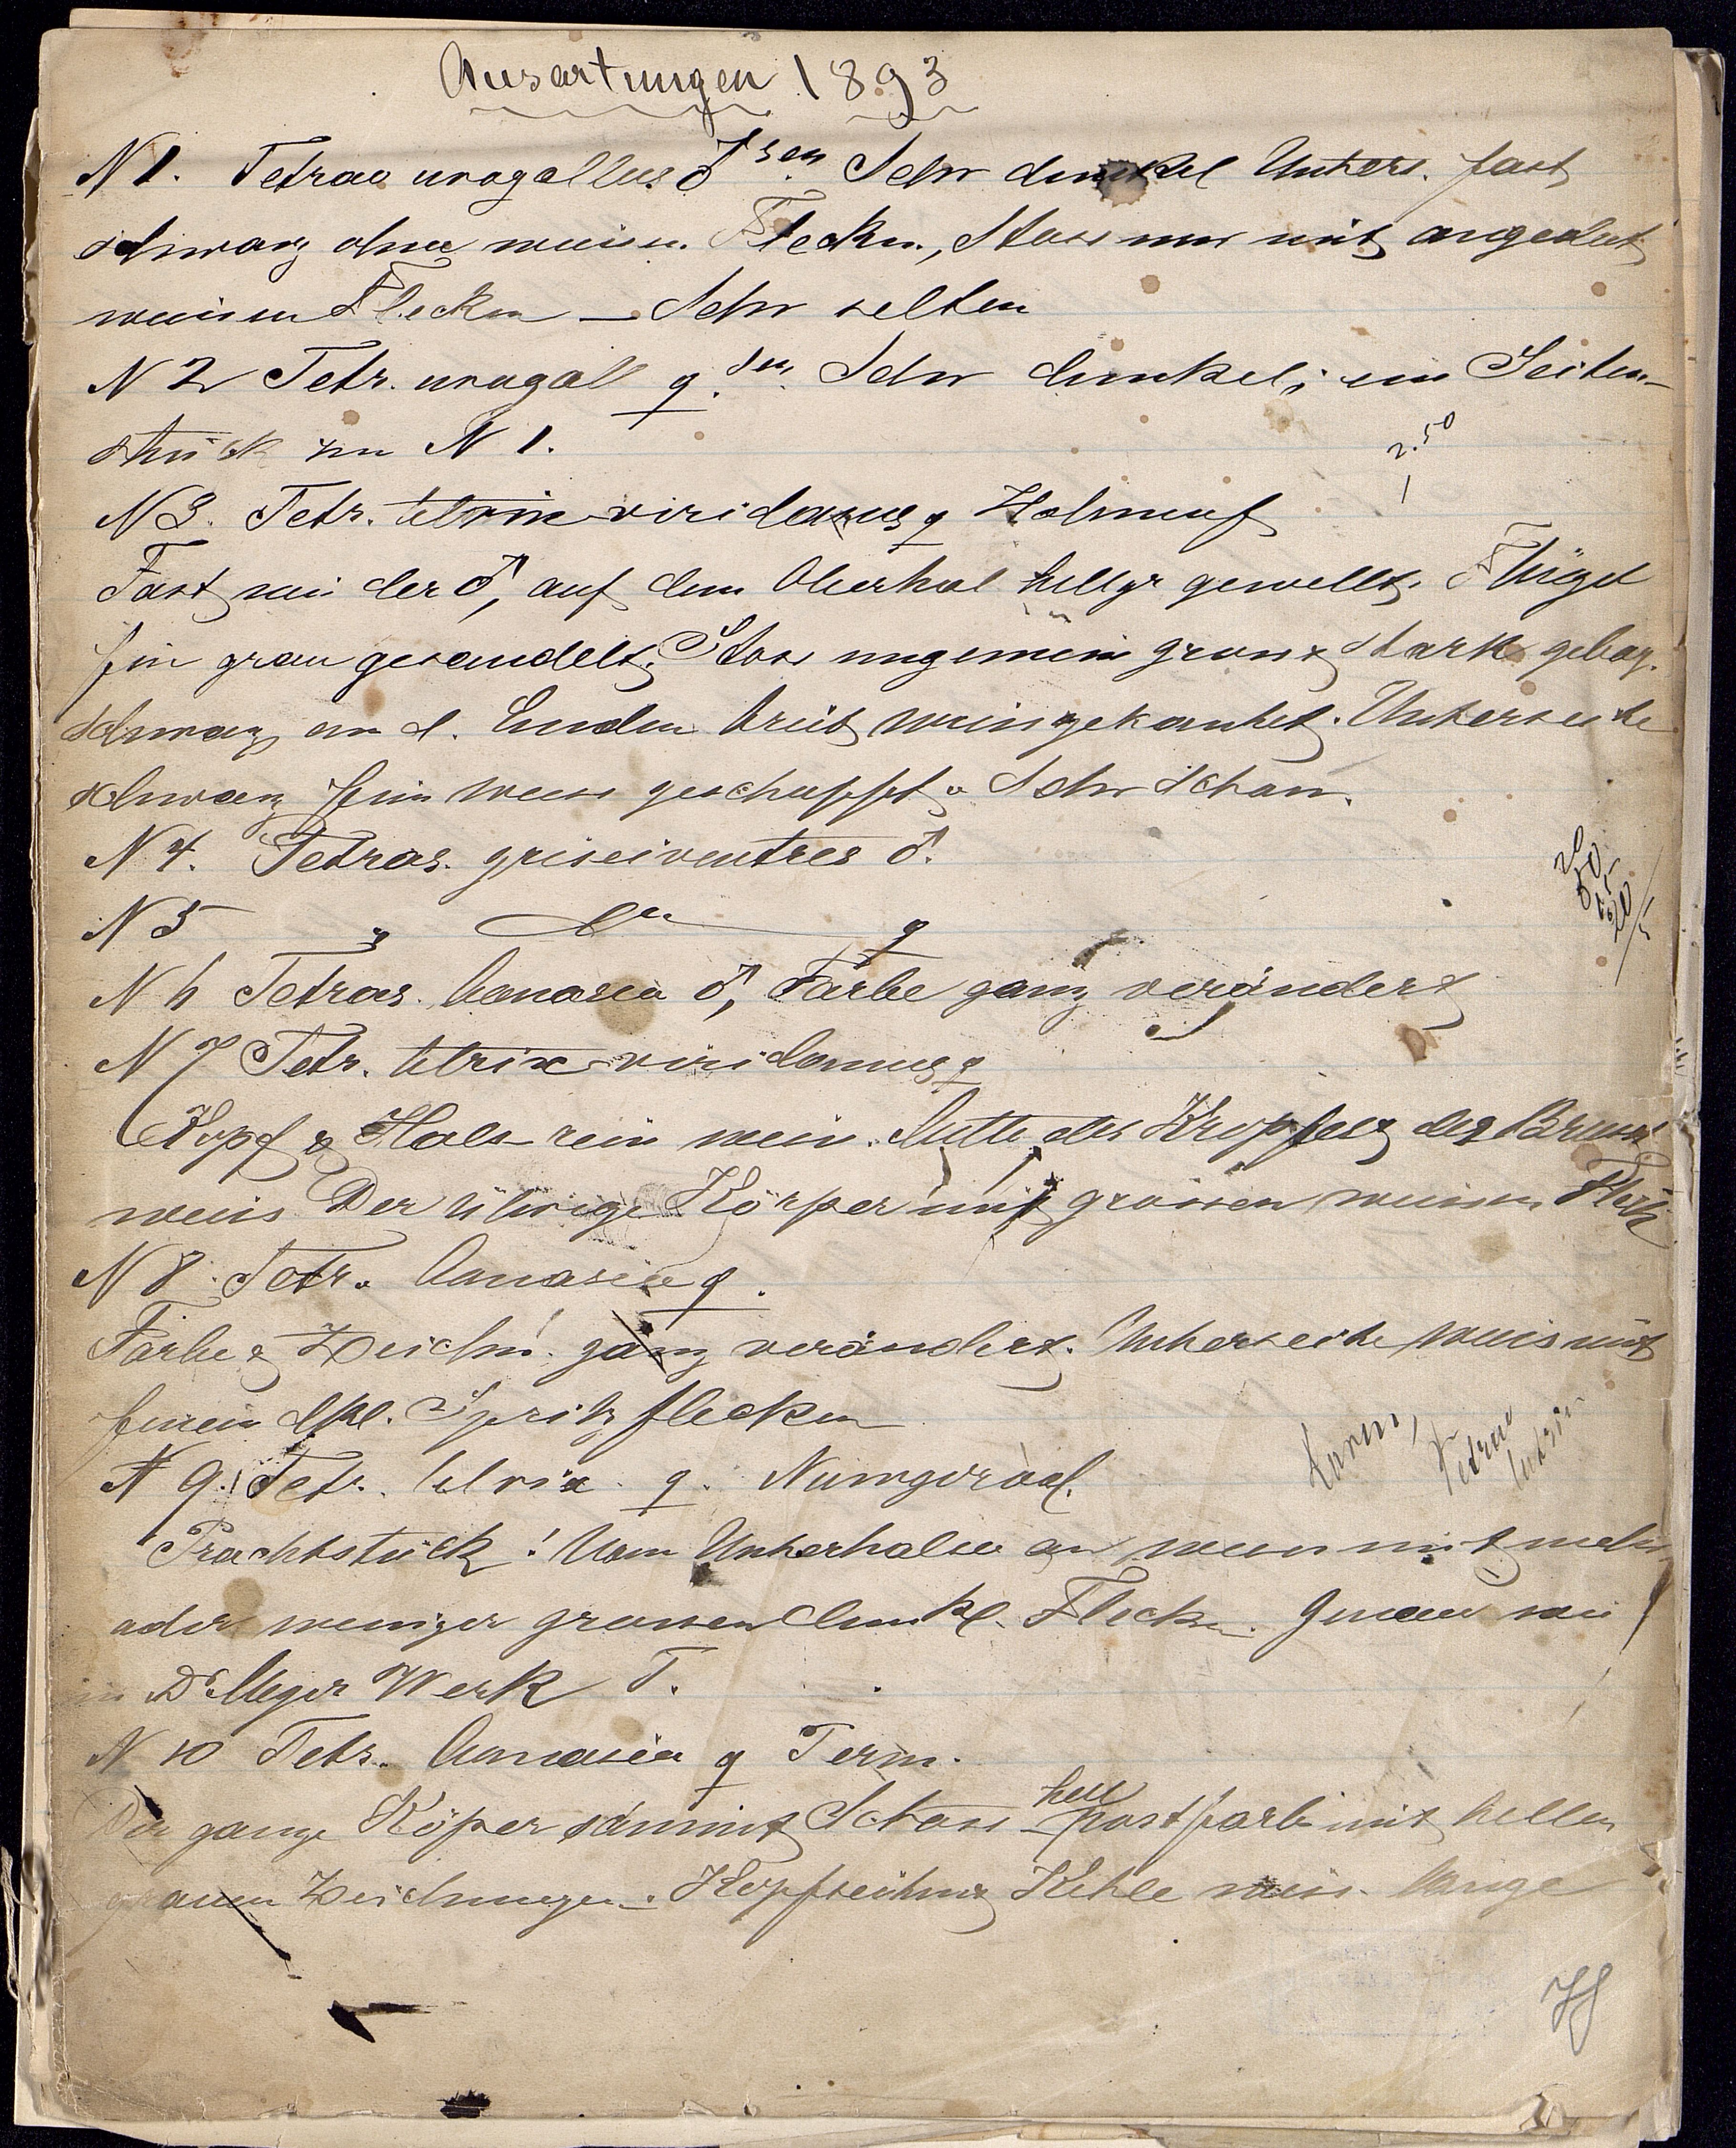 Ausartungen 1893
N 1. Tetrao urogallus ♂ sen. Sehr dunkel Unters. fast
schwarz ohne weisse. Flecken, Stoss nur mit angedeut
weissen Flecken – Sehr selten
N 2 Tetr. urogall ♀ sen. Sehr dunkel; ein Seiten-
stück zu N 1.
2.50
N 3. Tetr. tetrix viridanus ♀
Fast wie der ♂, auf dem Oberhal hellgr gewellt. Flügel
fein grau gesandelt. Stoss ungemein gross & stark gebog.
schwarz an d. Enden breit weiss gekantet. Unterseite
schwarz fein weiss geschuppt. Sehr schön.
N 4. Tetras. griseiventres ♂.
N 5 " ♀
N 6 Tetras. bonasia ♂, Färbe ganz verändert
N 7 Tetr. tetrix viridanus ♀
Kopf & Hals rein weiss. Mitte des Kropfes & der Brust
weiss Der übrige Körper mit grossen weissen Fleck
N 8. Tetr. bonasia ♀.
Farbe & Zeichn. ganz verändert. Unterseite weis mit
feinen dkl. Spritzflecken
Tetrao
N 9. Tetr. tetrix. ♀.
Prachtstück! Vom Unterhalse an weiss mit mehr
oder weniger grossen dunkl. Flecken. Genau wie
in Dr Meyer Werk T.
N 10 Tetr. bonasia ♀ Perm.
Der ganze Köper sammt Stoss hell rostfarb mit hellen
grauen Zeichnungen. Kopfseiten & Kehle weiss.